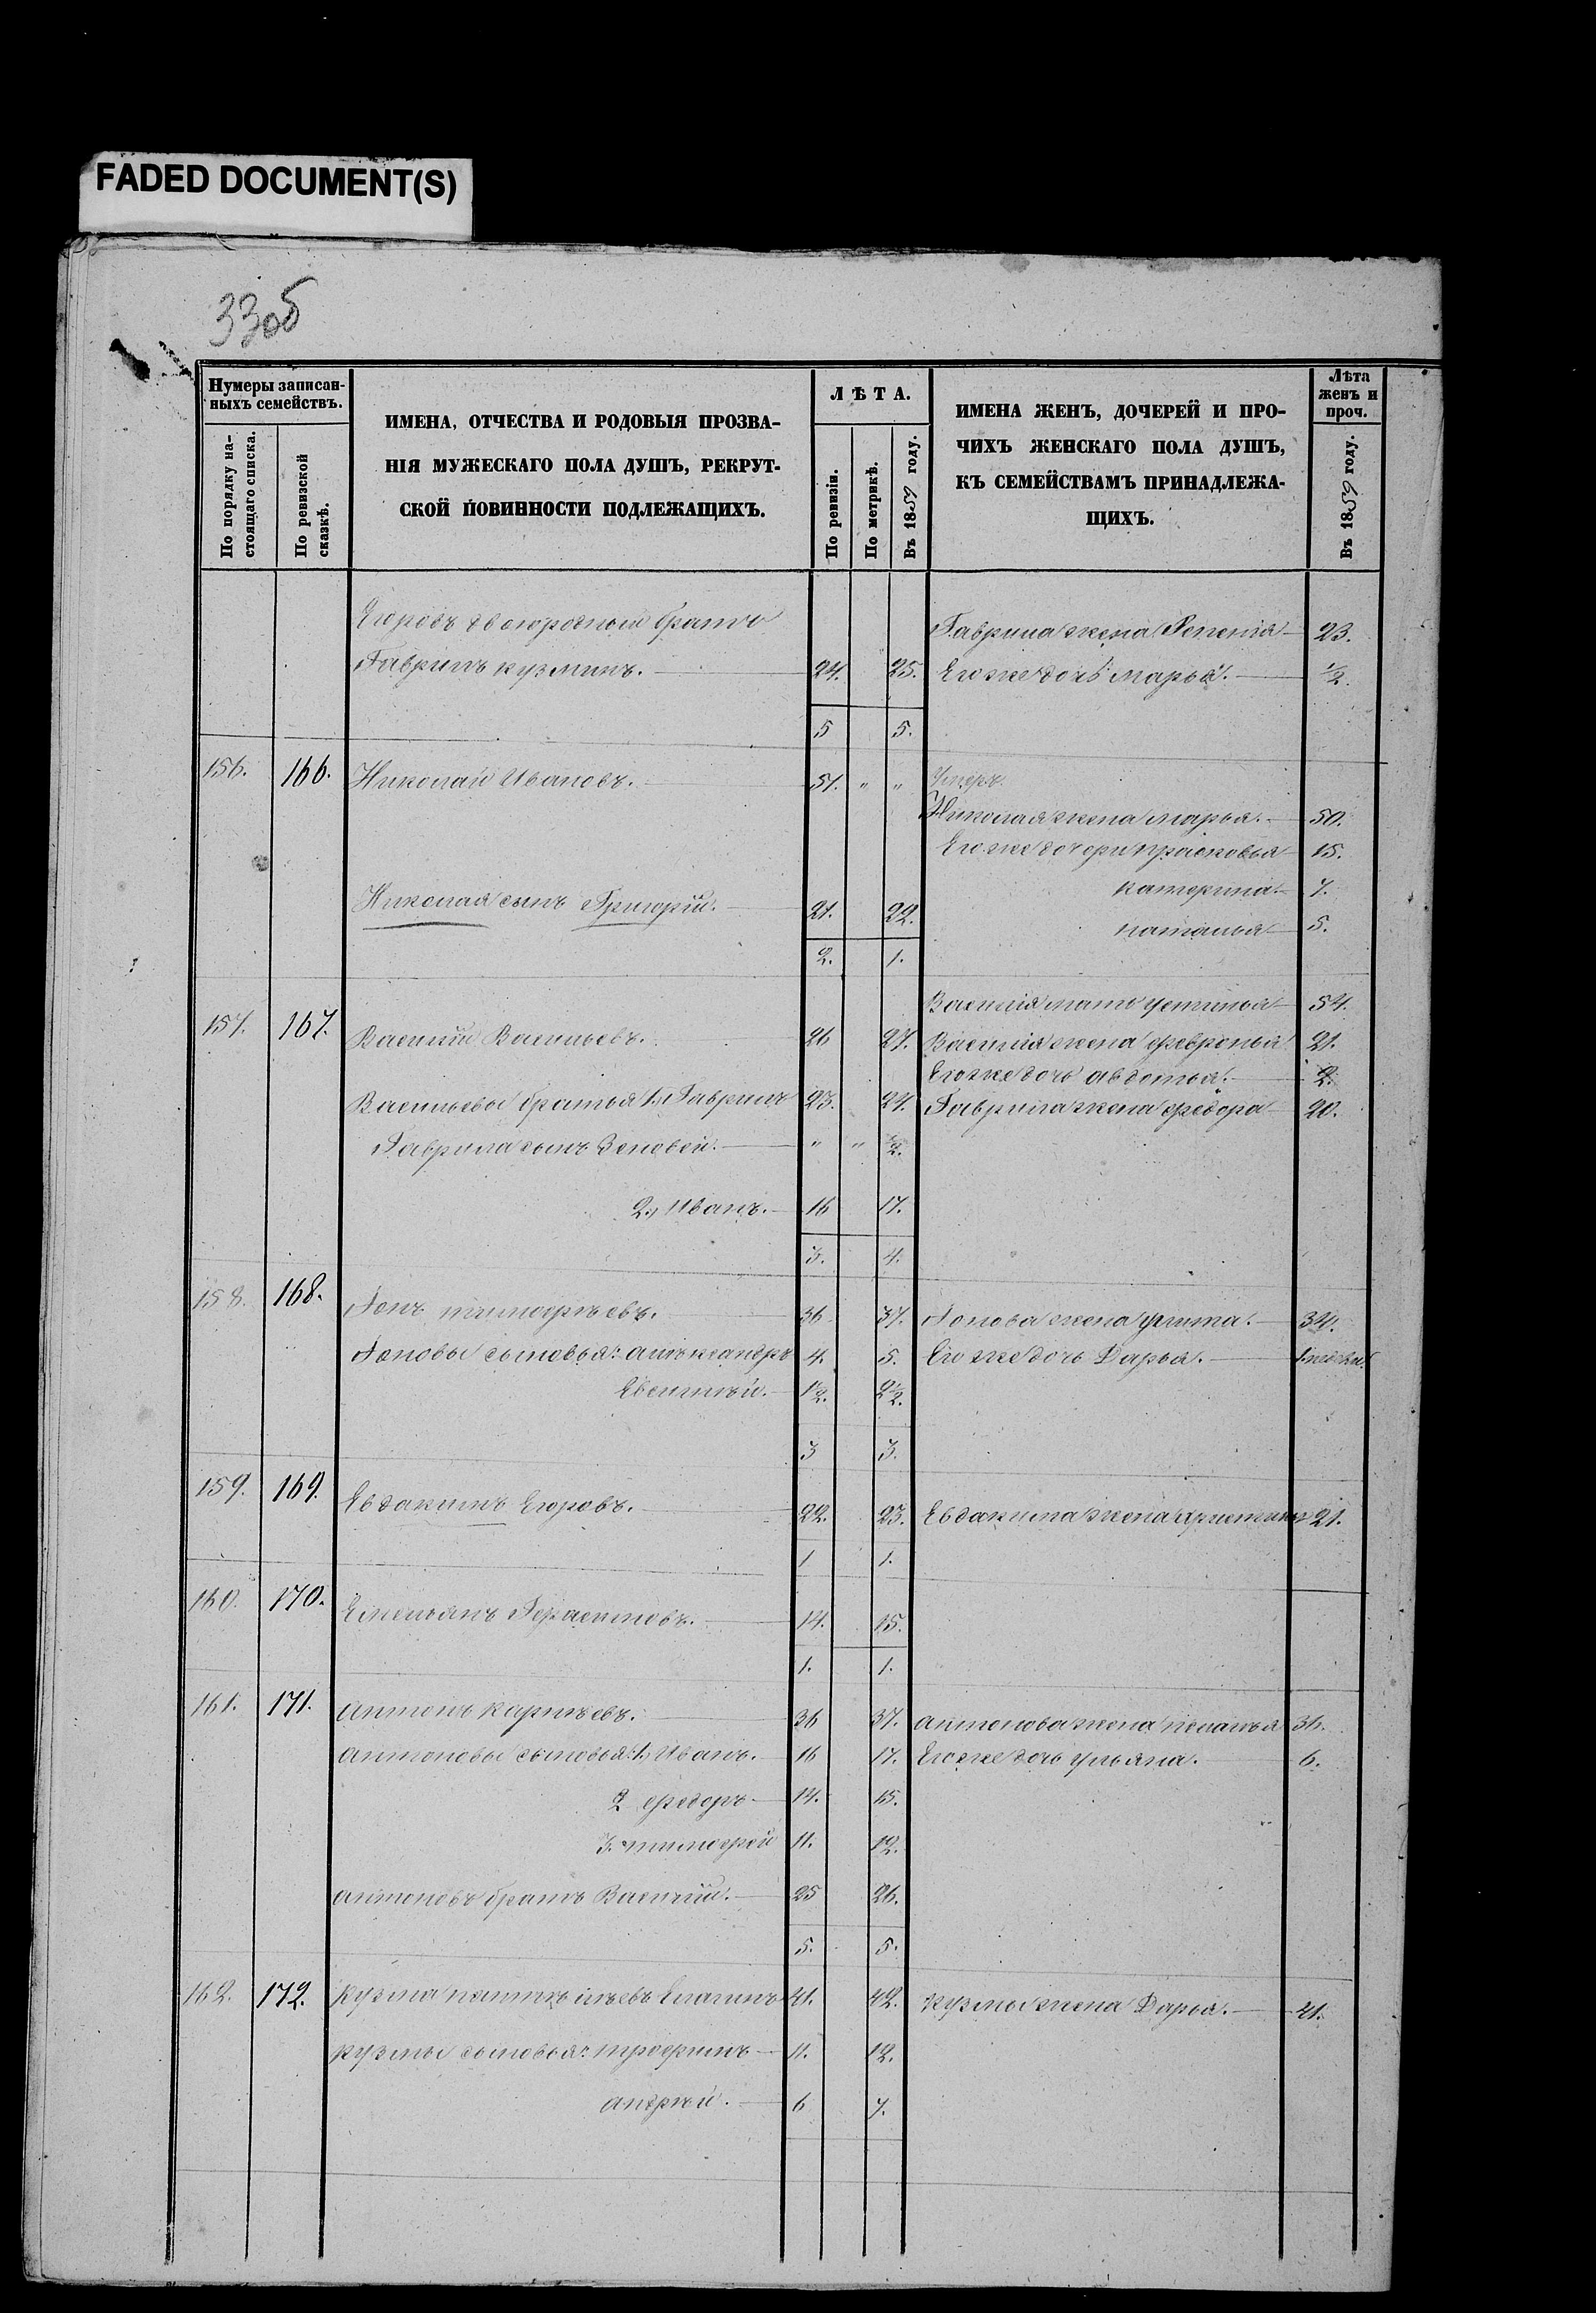 FADED DOCUMENT(S)
33об
Нумеры записан-
ныхъ семействъ.
По порядку на-
стоящаго списка.
По ревизской
сказкѣ.
ИМЕНА, ОТЧЕСТВА И РОДОВЫЯ ПРОЗВА-
НІЯ МУЖЕСКАГО ПОЛА ДУШЪ, РЕКРУТ-
СКОЙ ПОВИННОСТИ ПОДЛЕЖАЩИХЪ.
ЛѢТА.
По ревизіи.
По метрикѣ.
Въ 1859 году.
ИМЕНА ЖЕНЪ, ДОЧЕРЕЙ И ПРО-
ЧИХЪ ЖЕНСКАГО ПОЛА ДУШЪ,
КЪ СЕМЕЙСТВАМЪ ПРИНАДЛЕЖА-
ЩИХЪ.
Лѣта
женъ и
проч.
Въ 1859 году.
Егоровъ двоюродный братъ
Гаврила жена 23.
Гаврилъ кузминъ. 24. 25. Его же дочь марья. ½.
5 5.
156. 166. Николай Ивановъ. 51. " " Умеръ.
Николая жена марья. 50.
Его же дочери прасковья 15.
катерина. 7.
Николая сынъ Григорій. 21. 22.
наталья 5.
2. 1.
Василія мать устинья 54.
157. 167. Василій Васильевъ. 26 27. Василія жена февронья 21.
Его же дочь авдотья. 2.
Васильевы братья 1, Гаврилъ 23. 24. Гаврила жена федора 20.
Гаврила сынъ Зеновей. " " ½.
2, Иванъ. 16 17.
3. 4.
158. 168. тимофѣевъ. 36 37. жена улита. 34.
сыновья: алѣксандръ 4. 5. Его же дочь Дарья. 1 недѣли.
Евсигнѣй. 1½. 2½.
3 3.
159. 169. Евдакимъ Егоровъ. 22. 23. Евдакима жена 21.
1 1.
160. 170. Емельянъ Герасимовъ. 14. 15.
1. 1.
161. 171. антонъ карпѣевъ. 36 37. антонова жена пелагья 36.
антоновы сыновья: 1, Иванъ. 16 17. Его же дочь ульяна. 6.
2 федоръ 14. 15.
3. тимофей 11. 12.
антоновъ братъ Василій. 25 26.
5. 5.
162. 172. Кузма Елагинъ 41. 42. Кузмы жена Дарья. 41.
кузмы сыновья: трофимъ 11. 12.
андрѣй. 6 7.